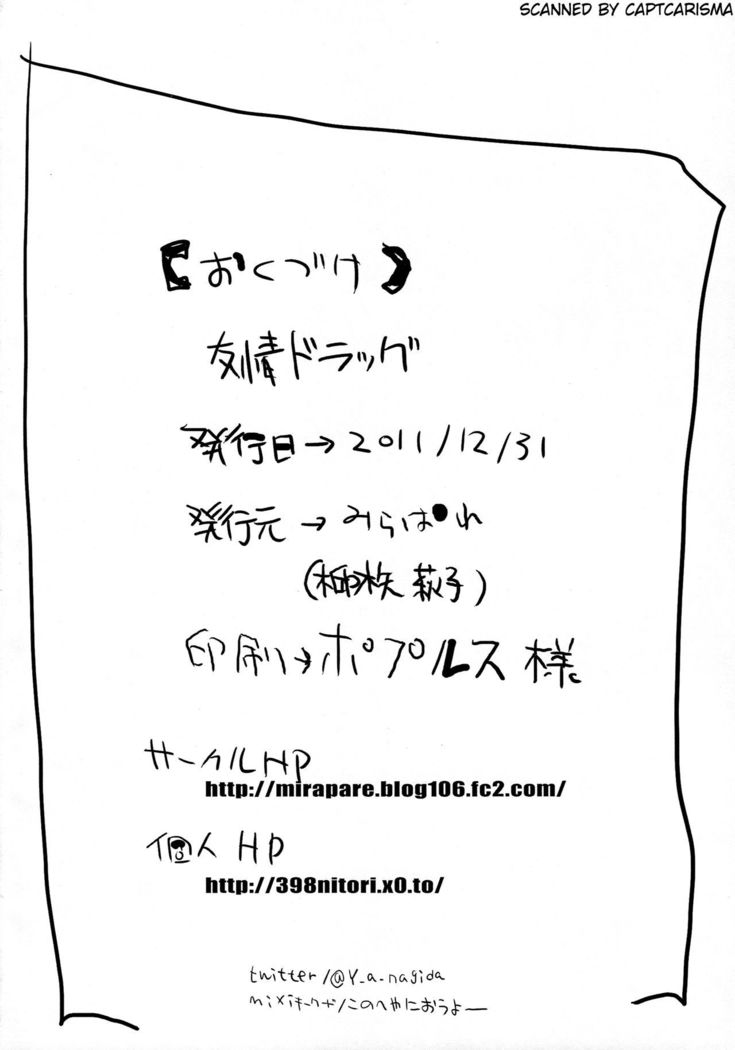 SCANNED BY CAPTCARISMA
【おくづけ】
友情ドラッグ
発行日→2011/12/31
発行元→みらぱ●れ
(柳 萩子)
印刷→ポプルス様
サークルHP
http://mirapare.blog106.fc2.com/
個人HP
http://398nitori.x0.to/
twitter/@Y_a_nagida
mixi/このへやにおうよー